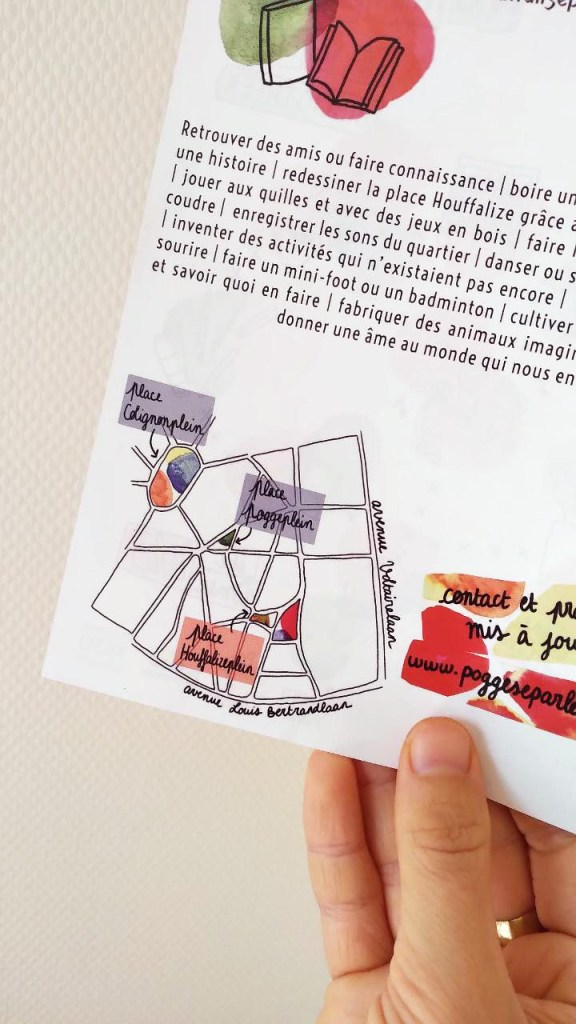 Retrouver des amis ou faire connaissance | boire un
une histoire | redessiner la place Houffalize grâce à
| jouer aux quilles et avec des jeux en bois | faire
coudre | enregistrer les sons du quartier | danser ou
| inventer des activités qui n'existaient pas encore |
sourire | faire un mini-foot ou un badminton | cultiver
et savoir quoi en faire | fabriquer des animaux imagin
donner une âme au monde qui nous en
place
Colignonplein
place
Poggeplein
avenue Voltairelaan
place
Houffalizeplein
avenue Louis Bertrandlaan
contact et pr
mis à jou
www.poggeseparle